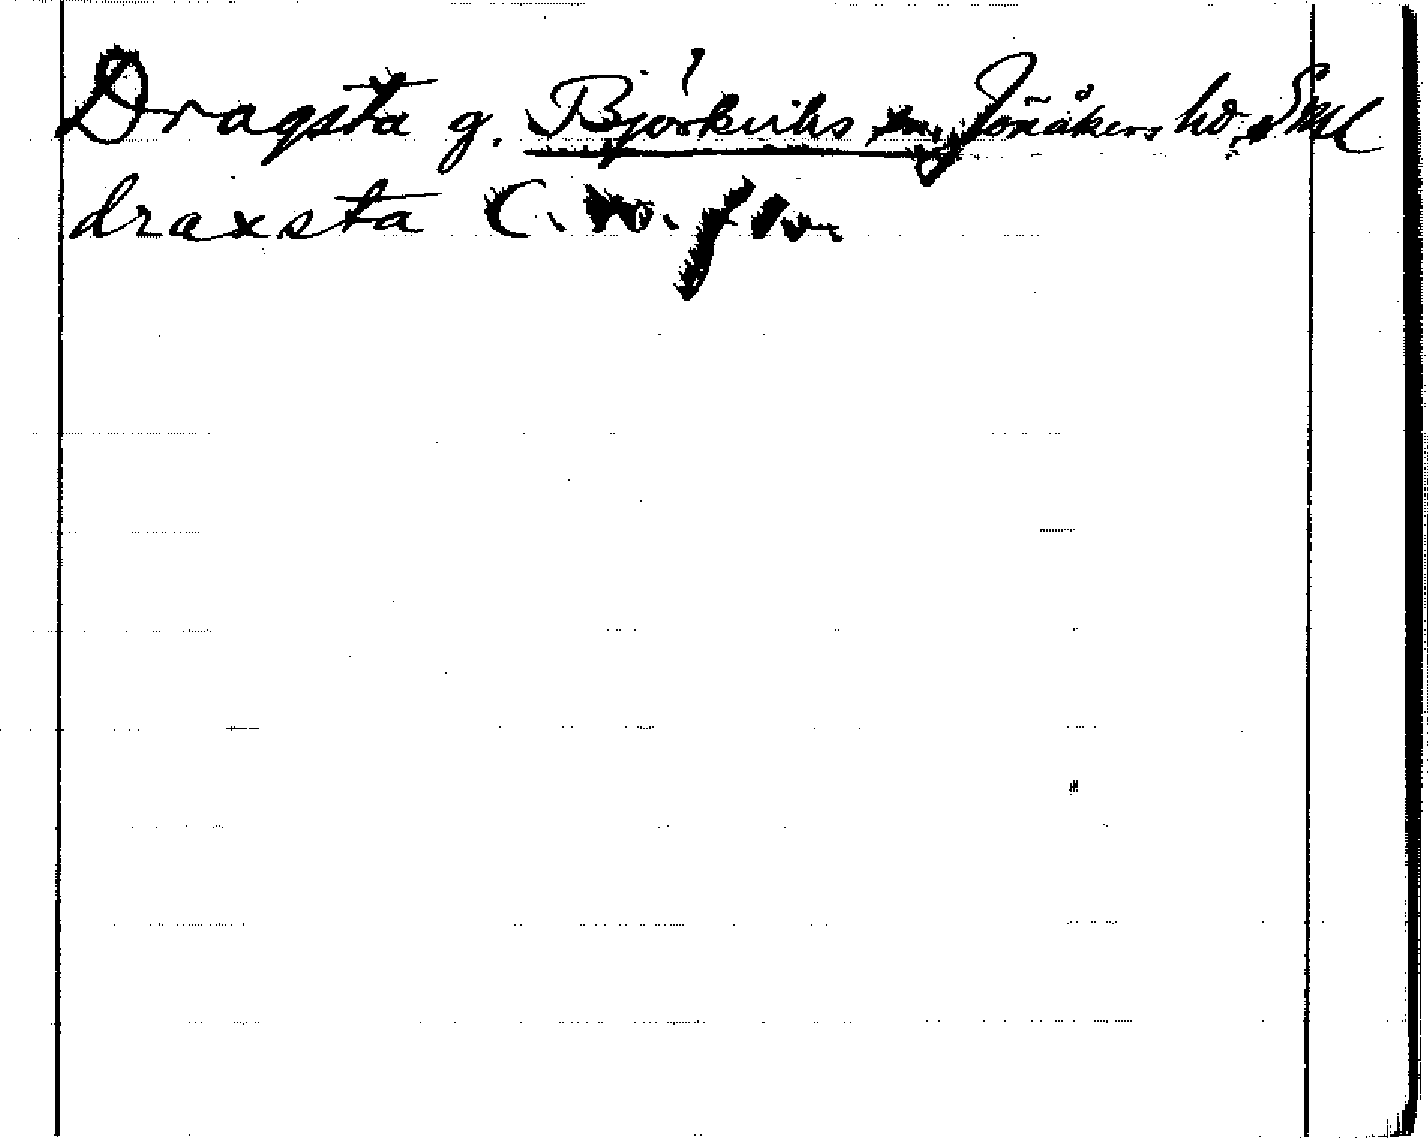 Dragsta g. Björkviks sn, Jönåkers hd, Sml
draxsta C. W.